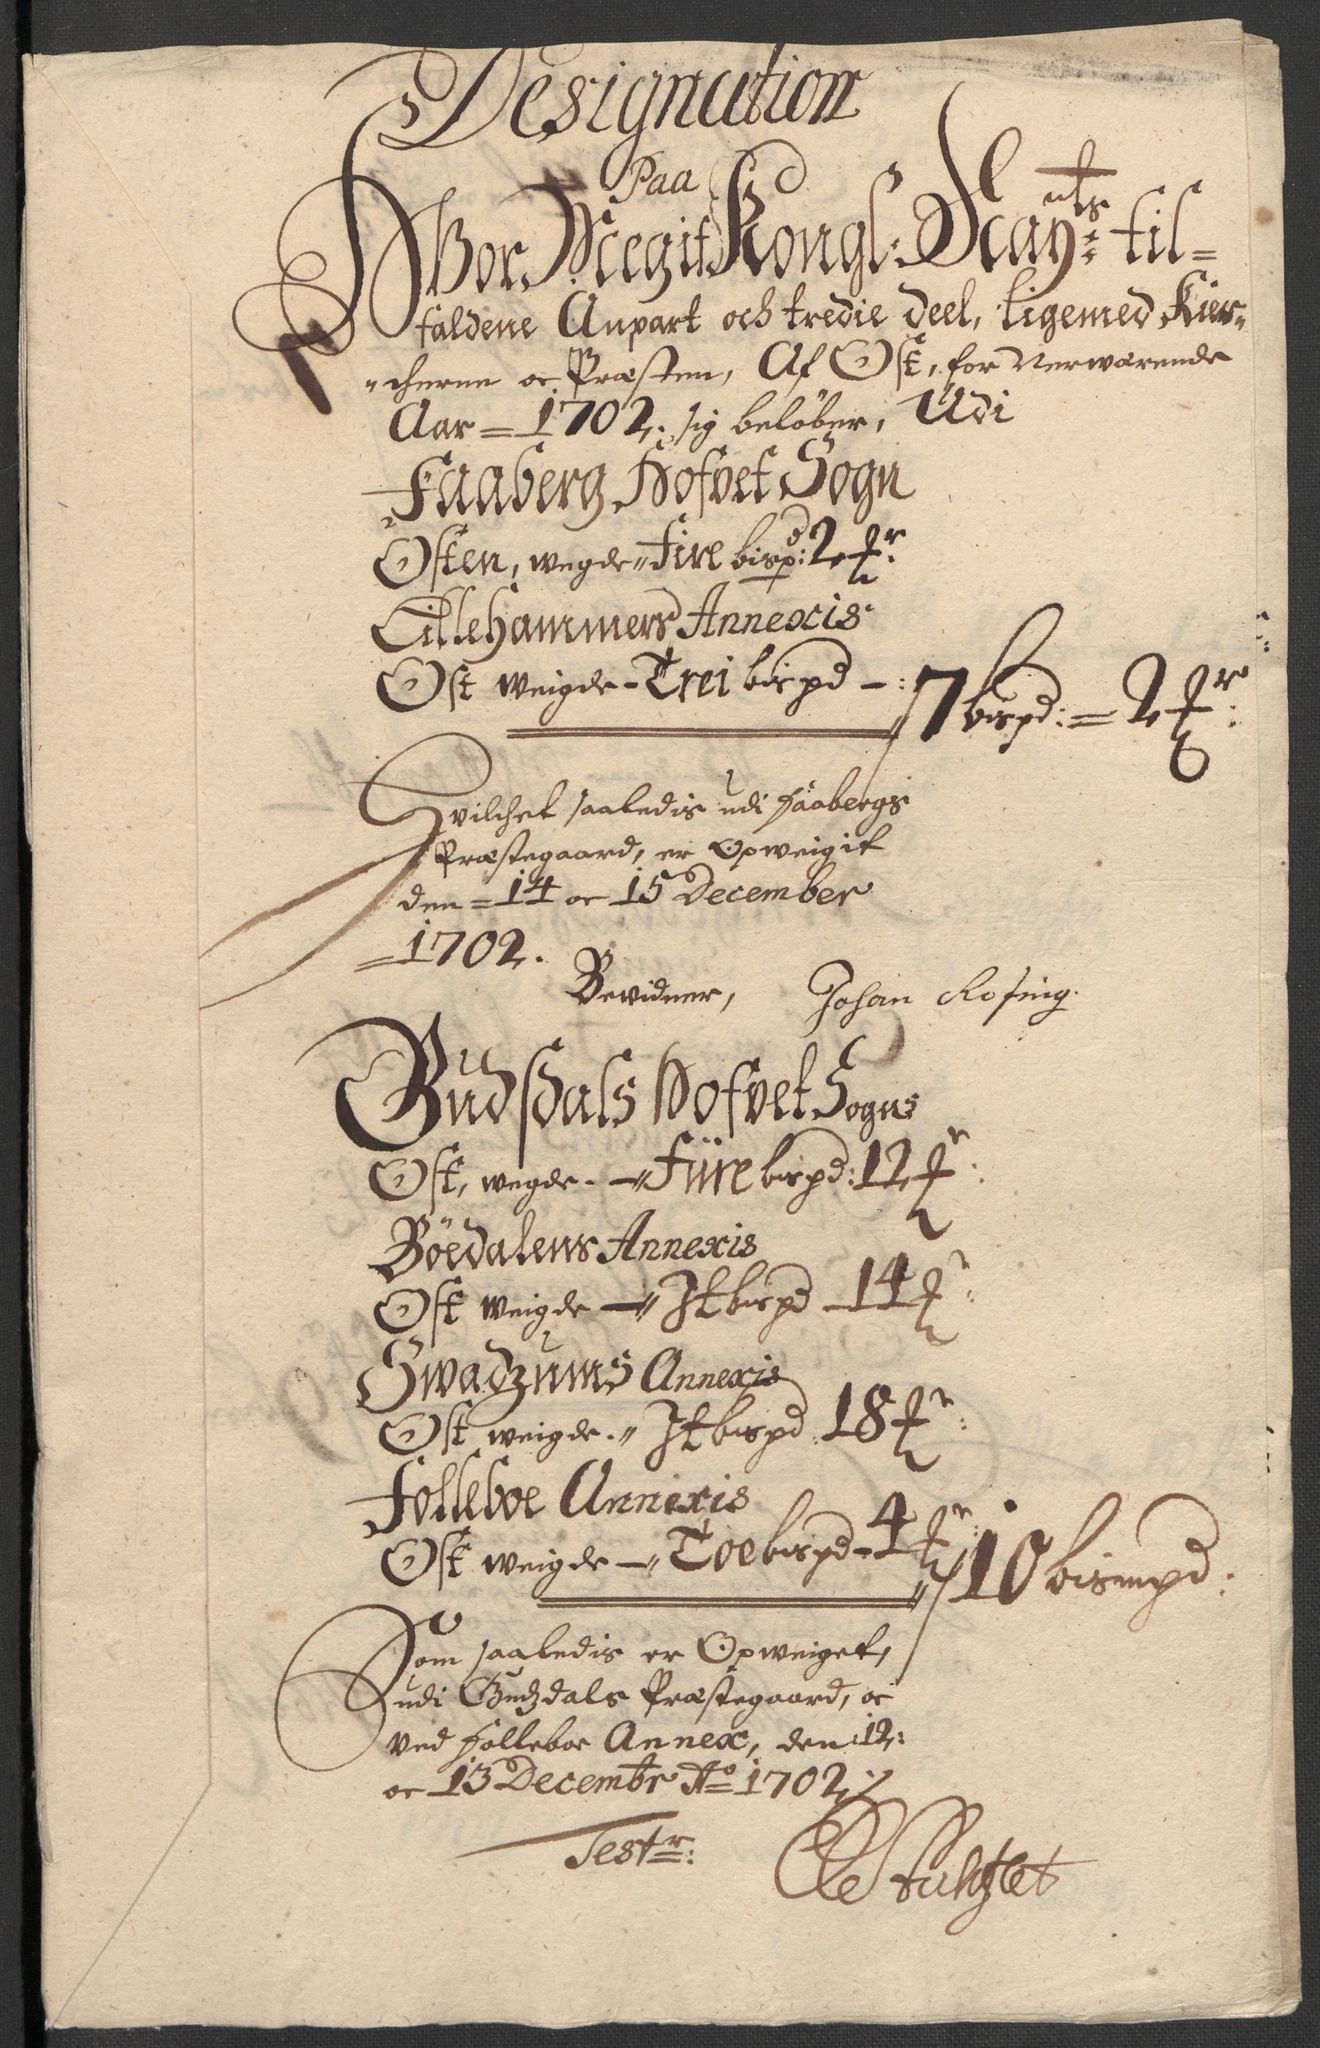 Designation
Paa
Hvor Megit Kongl: Mayts: til=
faldene Anpart och tredie deel, ligemed Kier=
=cherne oc Præsten, Af Ost, for nerwærende
Aar = 1702. sig beløber, Udi
Faaberg Hofvet Sogn
Osten, wegde " Fire bispd: 2 ℔r:
Lillehammers Annexis
Ost weigde - Trei bispd -: 7 bispd: = 2 ℔r:
Hvilchet saaledis udi Faabergs
Præstegaard, er Opweigit
den = 14 oc 15 December
= 1702.
Bevidner, Johan Rosing.
Gudsdals Hofvet Sogns
Ost, wegde - " Fiire bispd: 12 ℔r:
Böedalens Annexis
Ost weigde - " It bispd - 14 ℔r:
Swadzums Annexis
Ost weigde - " It bispd: 18 ℔r:
Folleboe Annexis
Ost weigde - " Toe bispd - 4 ℔r: 10 bismpd:
Som saaledis er Opweiget,
udi Gudzdals Præstegaard, oc
ved Folleboe Annex, den 12:
oc 13 Decembr Ao 1702 ⁒
Testr: